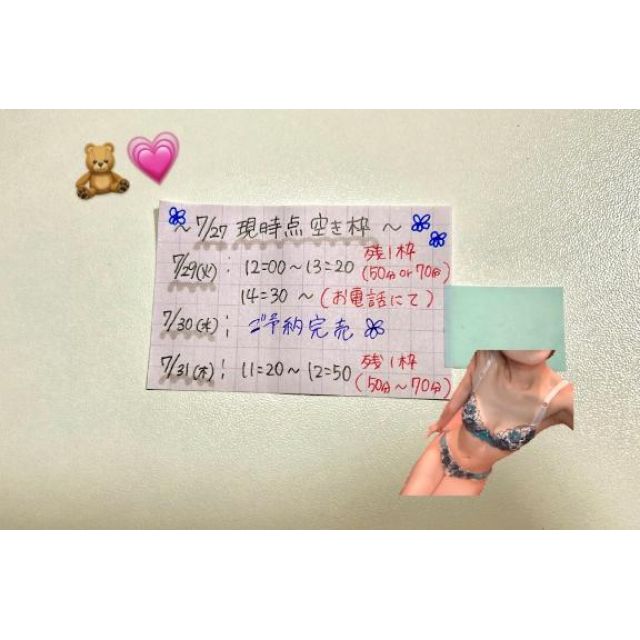 ～ 7/27 現時点 空き枠 ～
7/29(火)： 12:00～13:20 残1枠
(50分 or 70分)
14:30～ (お電話にて)
7/30(水)； ご予約完売
7/31(木)； 11:20～12:50 残1枠
(50分～70分)